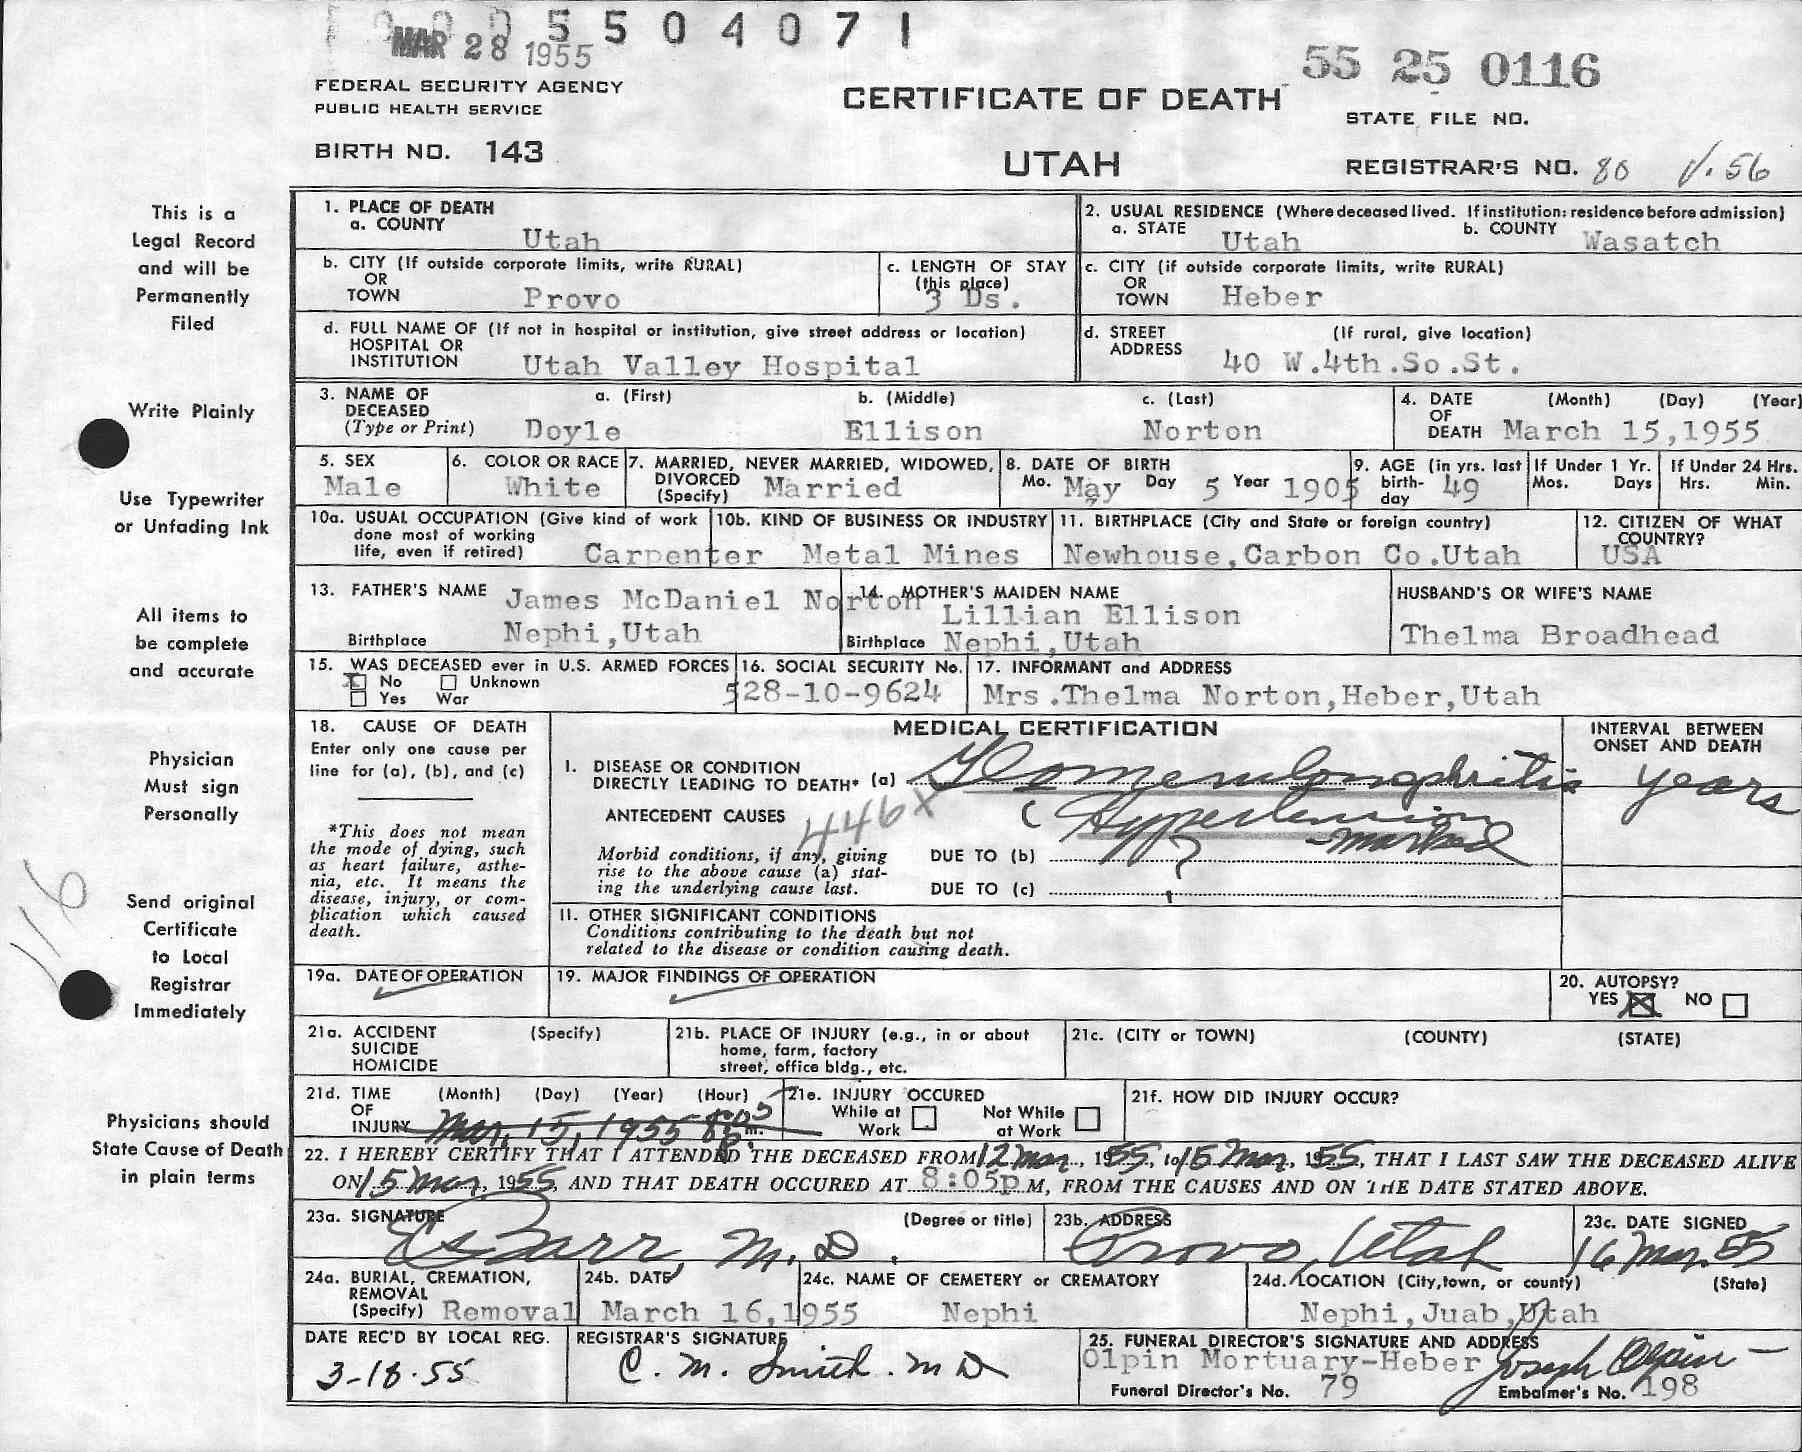 5504071
MAR 28 1955
55 25 0116
FEDERAL SECURITY AGENCY
PUBLIC HEALTH SERVICE
CERTIFICATE OF DEATH
STATE FILE NO.
BIRTH NO. 143
UTAH
REGISTRAR'S NO. 80 V.56
This is a
Legal Record
and will be
Permanently
Filed
Write Plainly
Use Typewriter
or Unfading Ink
All items to
be complete
and accurate
Physician
Must sign
Personally
116
Send original
Certificate
to Local
Registrar
Immediately
Physicians should
State Cause of Death
in plain terms
1. PLACE OF DEATH
a. COUNTY Utah
2. USUAL RESIDENCE (Where deceased lived. If institution: residence before admission)
a. STATE Utah b. COUNTY Wasatch
b. CITY (If outside corporate limits, write RURAL)
OR
TOWN Provo
c. LENGTH OF STAY
(this place)
3 Ds.
c. CITY (if outside corporate limits, write RURAL)
OR
TOWN Heber
d. FULL NAME OF (If not in hospital or institution, give street address or location)
HOSPITAL OR
INSTITUTION Utah Valley Hospital
d. STREET (If rural, give location)
ADDRESS 40 W.4th.So.St.
3. NAME OF a. (First) b. (Middle) c. (Last)
DECEASED
(Type or Print) Doyle Ellison Norton
4. DATE (Month) (Day) (Year)
OF
DEATH March 15,1955
5. SEX
Male
6. COLOR OR RACE
White
7. MARRIED, NEVER MARRIED, WIDOWED,
DIVORCED
(Specify) Married
8. DATE OF BIRTH
Mo. May Day 5 Year 1905
9. AGE (in yrs. last
birth-
day 49
If Under 1 Yr.
Mos. Days
If Under 24 Hrs.
Hrs. Min.
10a. USUAL OCCUPATION (Give kind of work
done most of working
life, even if retired) Carpenter
10b. KIND OF BUSINESS OR INDUSTRY
Metal Mines
11. BIRTHPLACE (City and State or foreign country)
Newhouse,Carbon Co.Utah
12. CITIZEN OF WHAT
COUNTRY?
USA
13. FATHER'S NAME James McDaniel Norton
Birthplace Nephi,Utah
14. MOTHER'S MAIDEN NAME
Lillian Ellison
Birthplace Nephi,Utah
HUSBAND'S OR WIFE'S NAME
Thelma Broadhead
15. WAS DECEASED ever in U.S. ARMED FORCES
X No Unknown
Yes War
16. SOCIAL SECURITY No.
528-10-9624
17. INFORMANT and ADDRESS
Mrs.Thelma Norton,Heber,Utah
18. CAUSE OF DEATH
Enter only one cause per
line for (a), (b), and (c)
*This does not mean
the mode of dying, such
as heart failure, asthe-
nia, etc. It means the
disease, injury, or com-
plication which caused
death.
MEDICAL CERTIFICATION
INTERVAL BETWEEN
ONSET AND DEATH
I. DISEASE OR CONDITION
DIRECTLY LEADING TO DEATH* (a) Glomerulonephritis years
ANTECEDENT CAUSES 446X ( Hypertension
- marked
Morbid conditions, if any, giving
rise to the above cause (a) stat-
ing the underlying cause last.
DUE TO (b)
DUE TO (c)
II. OTHER SIGNIFICANT CONDITIONS
Conditions contributing to the death but not
related to the disease or condition causing death.
19a. DATE OF OPERATION
19. MAJOR FINDINGS OF OPERATION
20. AUTOPSY?
YES X NO
21a. ACCIDENT (Specify)
SUICIDE
HOMICIDE
21b. PLACE OF INJURY (e.g., in or about
home, farm, factory
street, office bldg., etc.
21c. (CITY or TOWN) (COUNTY) (STATE)
21d. TIME (Month) (Day) (Year) (Hour)
OF
INJURY Mar, 15, 1955 m.
21e. INJURY OCCURED
While at Work Not While at Work
21f. HOW DID INJURY OCCUR?
22. I HEREBY CERTIFY THAT I ATTENDED THE DECEASED FROM 12 Mar, 1955, to 15 Mar, 1955, THAT I LAST SAW THE DECEASED ALIVE
ON 15 Mar, 1955, AND THAT DEATH OCCURED AT 8:05p M, FROM THE CAUSES AND ON THE DATE STATED ABOVE.
23a. SIGNATURE (Degree or title)
Barr, M.D.
23b. ADDRESS
Provo, Utah
23c. DATE SIGNED
16 Mar. 55
24a. BURIAL, CREMATION,
REMOVAL
(Specify) Removal
24b. DATE
March 16,1955
24c. NAME OF CEMETERY or CREMATORY
Nephi
24d. LOCATION (City, town, or county) (State)
Nephi,Juab,Utah
DATE REC'D BY LOCAL REG.
3-18-55
REGISTRAR'S SIGNATURE
C. M. Smith. M D
25. FUNERAL DIRECTOR'S SIGNATURE AND ADDRESS
Olpin Mortuary-Heber Joseph Olpin
Funeral Director's No. 79 Embalmer's No. 198